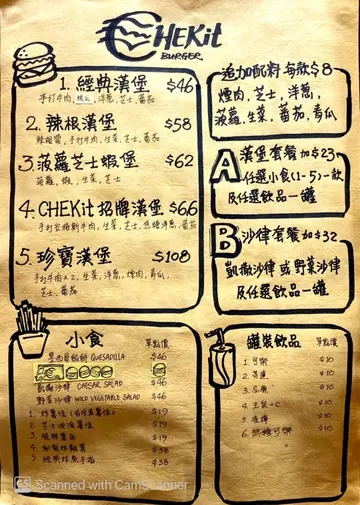 CHEKit
BURGER
1. 經典漢堡 $46
手打牛肉, 青瓜, 洋蔥, 芝士, 蕃茄
2. 辣根漢堡 $58
辣根醬, 手打牛肉, 生菜, 芝士, 蕃茄
3. 菠蘿芝士蝦堡 $62
菠蘿, 蝦, 生菜, 芝士
4. CHEKit 招牌漢堡 $66
手打安格斯牛肉, 生菜, 芝士, 焦糖洋蔥, 蕃茄
5. 珍寶漢堡 $108
手打牛肉 x 2, 生菜, 洋蔥, 煙肉, 青瓜,
芝士, 蕃茄
追加配料 每款$8
煙肉, 芝士, 洋蔥,
菠蘿, 生菜, 蕃茄, 青瓜
A 漢堡套餐 加$23
任選小食(1-5)一款
及任選飲品一罐
B 沙律套餐 加$32
凱撒沙律 或 野菜沙律
及任選飲品一罐
小食 單點價
墨西哥餡餅 QUESADILLA $46
凱撒沙律 CAESAR SALAD $46
野菜沙律 WILD VEGETABLE SALAD $46
1. 炸薯條 $19
2. 芝士 薯條 $19
3. $19
4. $38
5. $38
罐裝飲品 單點價
1. 可樂 $10
2. $10
3. $10
4. $10
5. $10
6. 無糖可樂 $10
CS Scanned with CamScanner